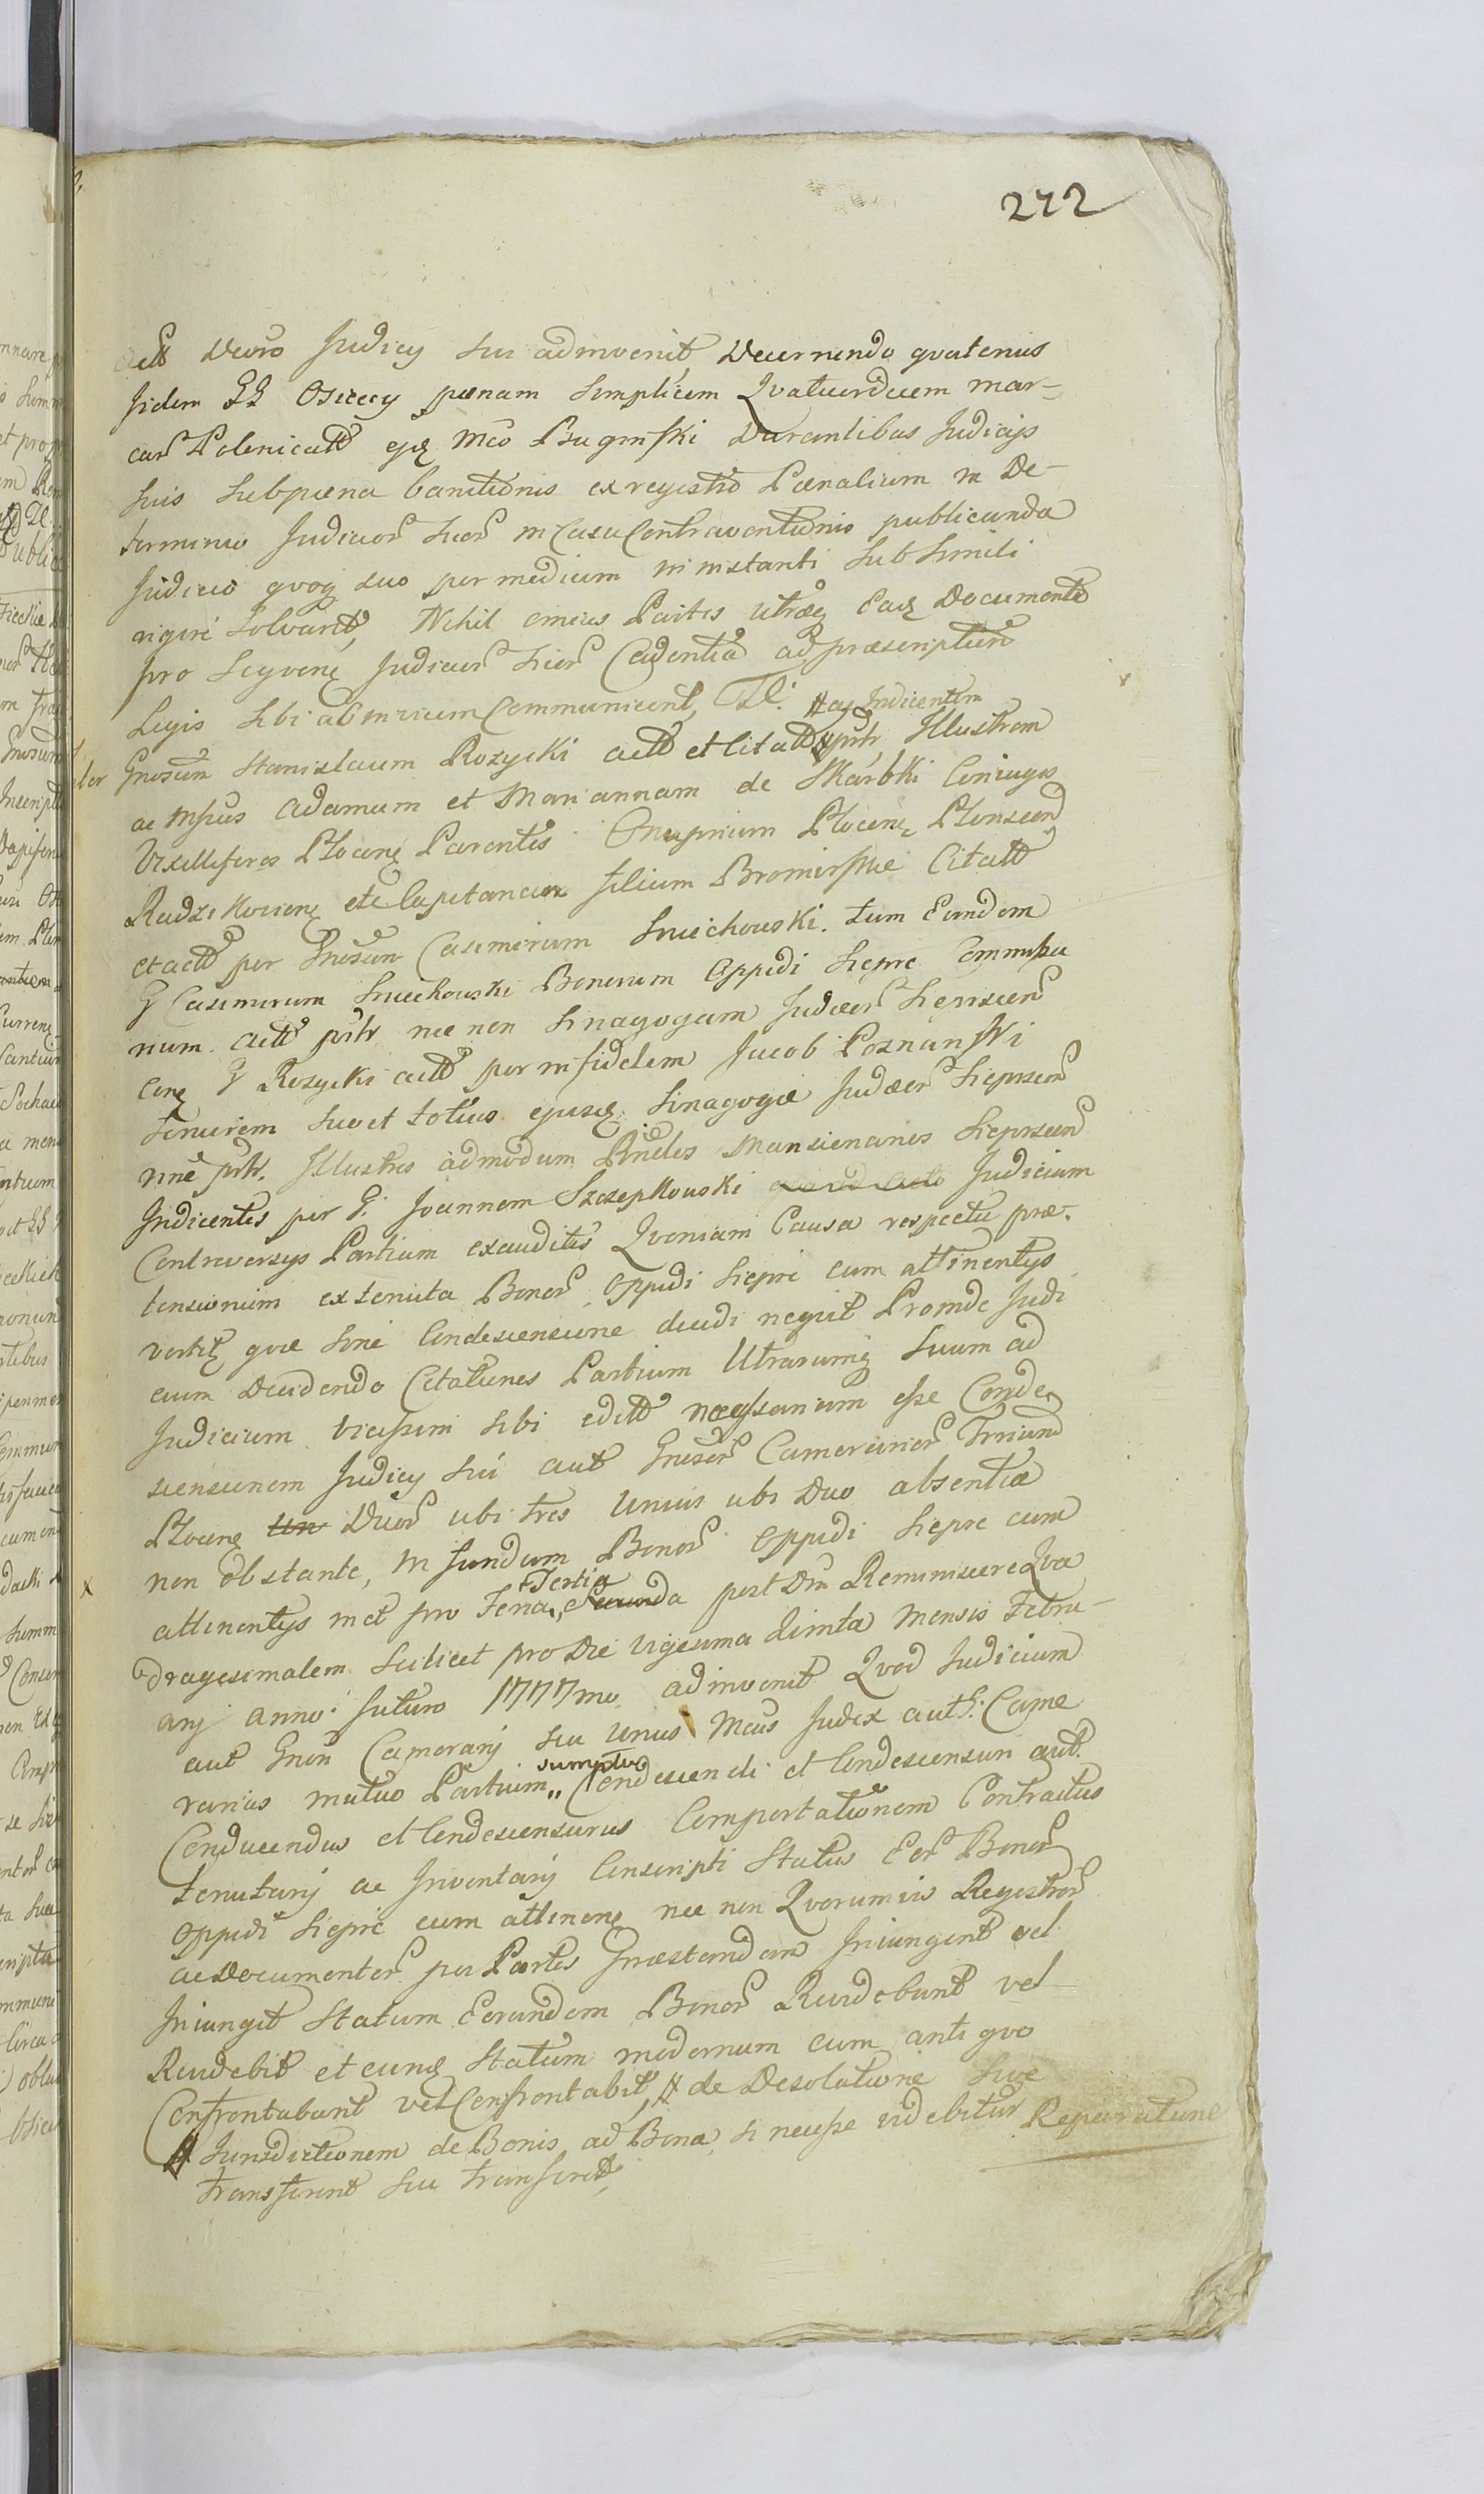 272
Decro Judicy sui adinvenit, Decernendo qvatenus
Iidem GG Osieccy pœnam simplicem Qvatuordecem mar-
car Polonicalt ejq Mco Psuginski Durantibus Judicijs
suis sub pœna banitionis ex regestro Pœnalium in De-
terminio Judicior suor in Casu Contraventionis publicanda
Judicio qvoq suo per medium in instanti sub simili
rigore solvant, Nihil omius Partes utræq Eaq Documenta
pro seqvenq Judicior suor Cadentia ad præscriptum
Legis sibi ad invicem Communicent,
ac Indicentem
Gnosum Stanislaum Rozycki actt et citatt Illustrem
ac Mfcus Adamum et Mariannam de Skarbki Coniuges
Vexilliferos Plocenq Parentes Onuprium Plocenq Plonscen
Radzikovienq etc Capitaneum filium Bromirskie Citatt
et actt per Gnosum Casimirum Sniechowski. tum Eundem
G Casimirum Sniechowski Bonorum Oppidi Sieprc Commissa
rium actt necnon Sinagogam Judæor Sieprscen
G Rozycki actt per infidelem Jacob Poznanski
Seniorem suo et totius ejusq Sinagogæ Judæor Sieprscen
Illustres admodum Rndos Mansionarios Sieprscen
Indicentes per G. Joannem Szczepkowski Judicium
Controversys Partium exauditis Qvoniam Causa respectu præ-
tensionum ex tenuta Bonor Oppidi Sieprc cum attinentys
vertit qvæ sine Condescensione decidi neqvit Proinde Judi
cium Decidendo Citationes Partium Utrarumq suum ad
Judicium vicissim sibi editt necessarium esse Conde
scensionem Judicy sui aut Gnosor Camerarior Trium
Plocenq un Duor ubi tres Unius ubi Duo absentia
non obstante, in fundum Bonor Oppidi Sieprc cum
attinentijs met pro Feria Tertia post Dm Reminiscere Qva
dragesimalem scilicet pro Die vigesima Qvinta Mensis Febru-
arij anno futuro 1777mo adinvenit Qvod Judicium
aut Gnon Camerarij seu Unus Mcus Judex aut G. Came
rarius mutuo Partium sumptu Condescendi et Condescensuri aut
Conducendus et Condescensurus Comportationem Contractus
tenutarij ac Inventarij Conscripti Status Eor Bonor
Oppidi Sieprc cum attinenq nec non Qvorumvis Regestror
ac Documentor per Partes Præstandam Iniungent vel
Iniunget Statum Eorundem Bonor Revidebunt vel
Revidebit et eunq statum modernum cum antiqvo
Confrontabunt vel Confrontabit, # de Desolatione sive
# Jurisdictionem de Bonis ad Bona, si necesse videbitur Reparatione
transferent seu transferet,